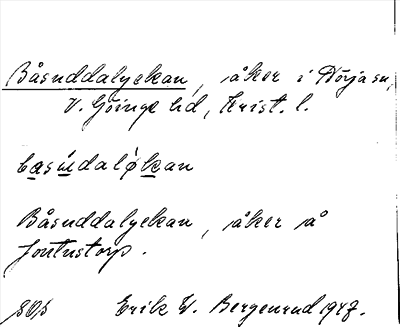 Båsnddalyckan, åker i Dörja sn,
V. Göinge hd, Krist. l.
båsn̂dalỳkan
Båsnddalyckan, åker på
Jontustorp.
Erik W. Bergenrud 1947.